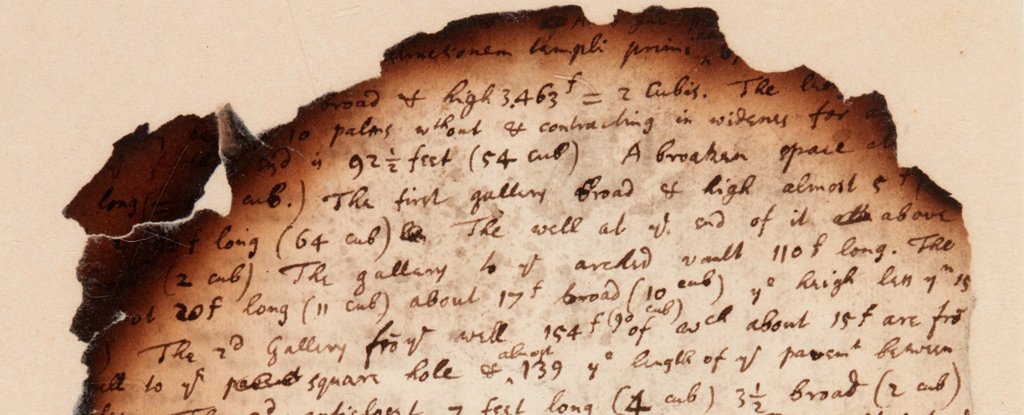 templi primi
broad & high 3.463f = 2 Cubis. The
10 palms wthout & contracting in widenes for
End is 92½ feet (54 cub) A broaken space
long ( cub.) The first gallery broad & high almost 5f
long (64 cub) The well at ye. end of it above
(2 cub) The gallery to ye arched vault 110f long. The
20f long (11 cub) about 17f broad (10 cub) ye heigh less yn 15
) The 2d Gallery frō ye well 154f (90 cub) of wch about 15f are frō
to ye square hole & almost 139 ye length of ye pavemt between
The 2d anticloset 7 feet long (4 cub) 3½ broad (2 cub)